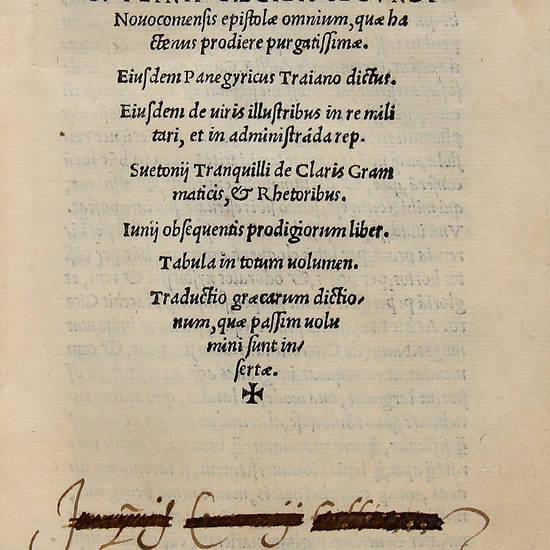 Nouocomensis epistolæ omnium, quæ ha
ctenus prodiere purgatissimæ.
Eiusdem Panegyricus Traiano dictus.
Eiusdem de uiris illustribus in re mili
tari, et in administrāda rep.
Suetonij Tranquilli de Claris Gram
maticis, & Rhetoribus.
Iunij obsequentis prodigiorum liber.
Tabula in totum uolumen.
Traductio græcarum dictio-
num, quæ passim uolu
mini sunt in-
sertæ.